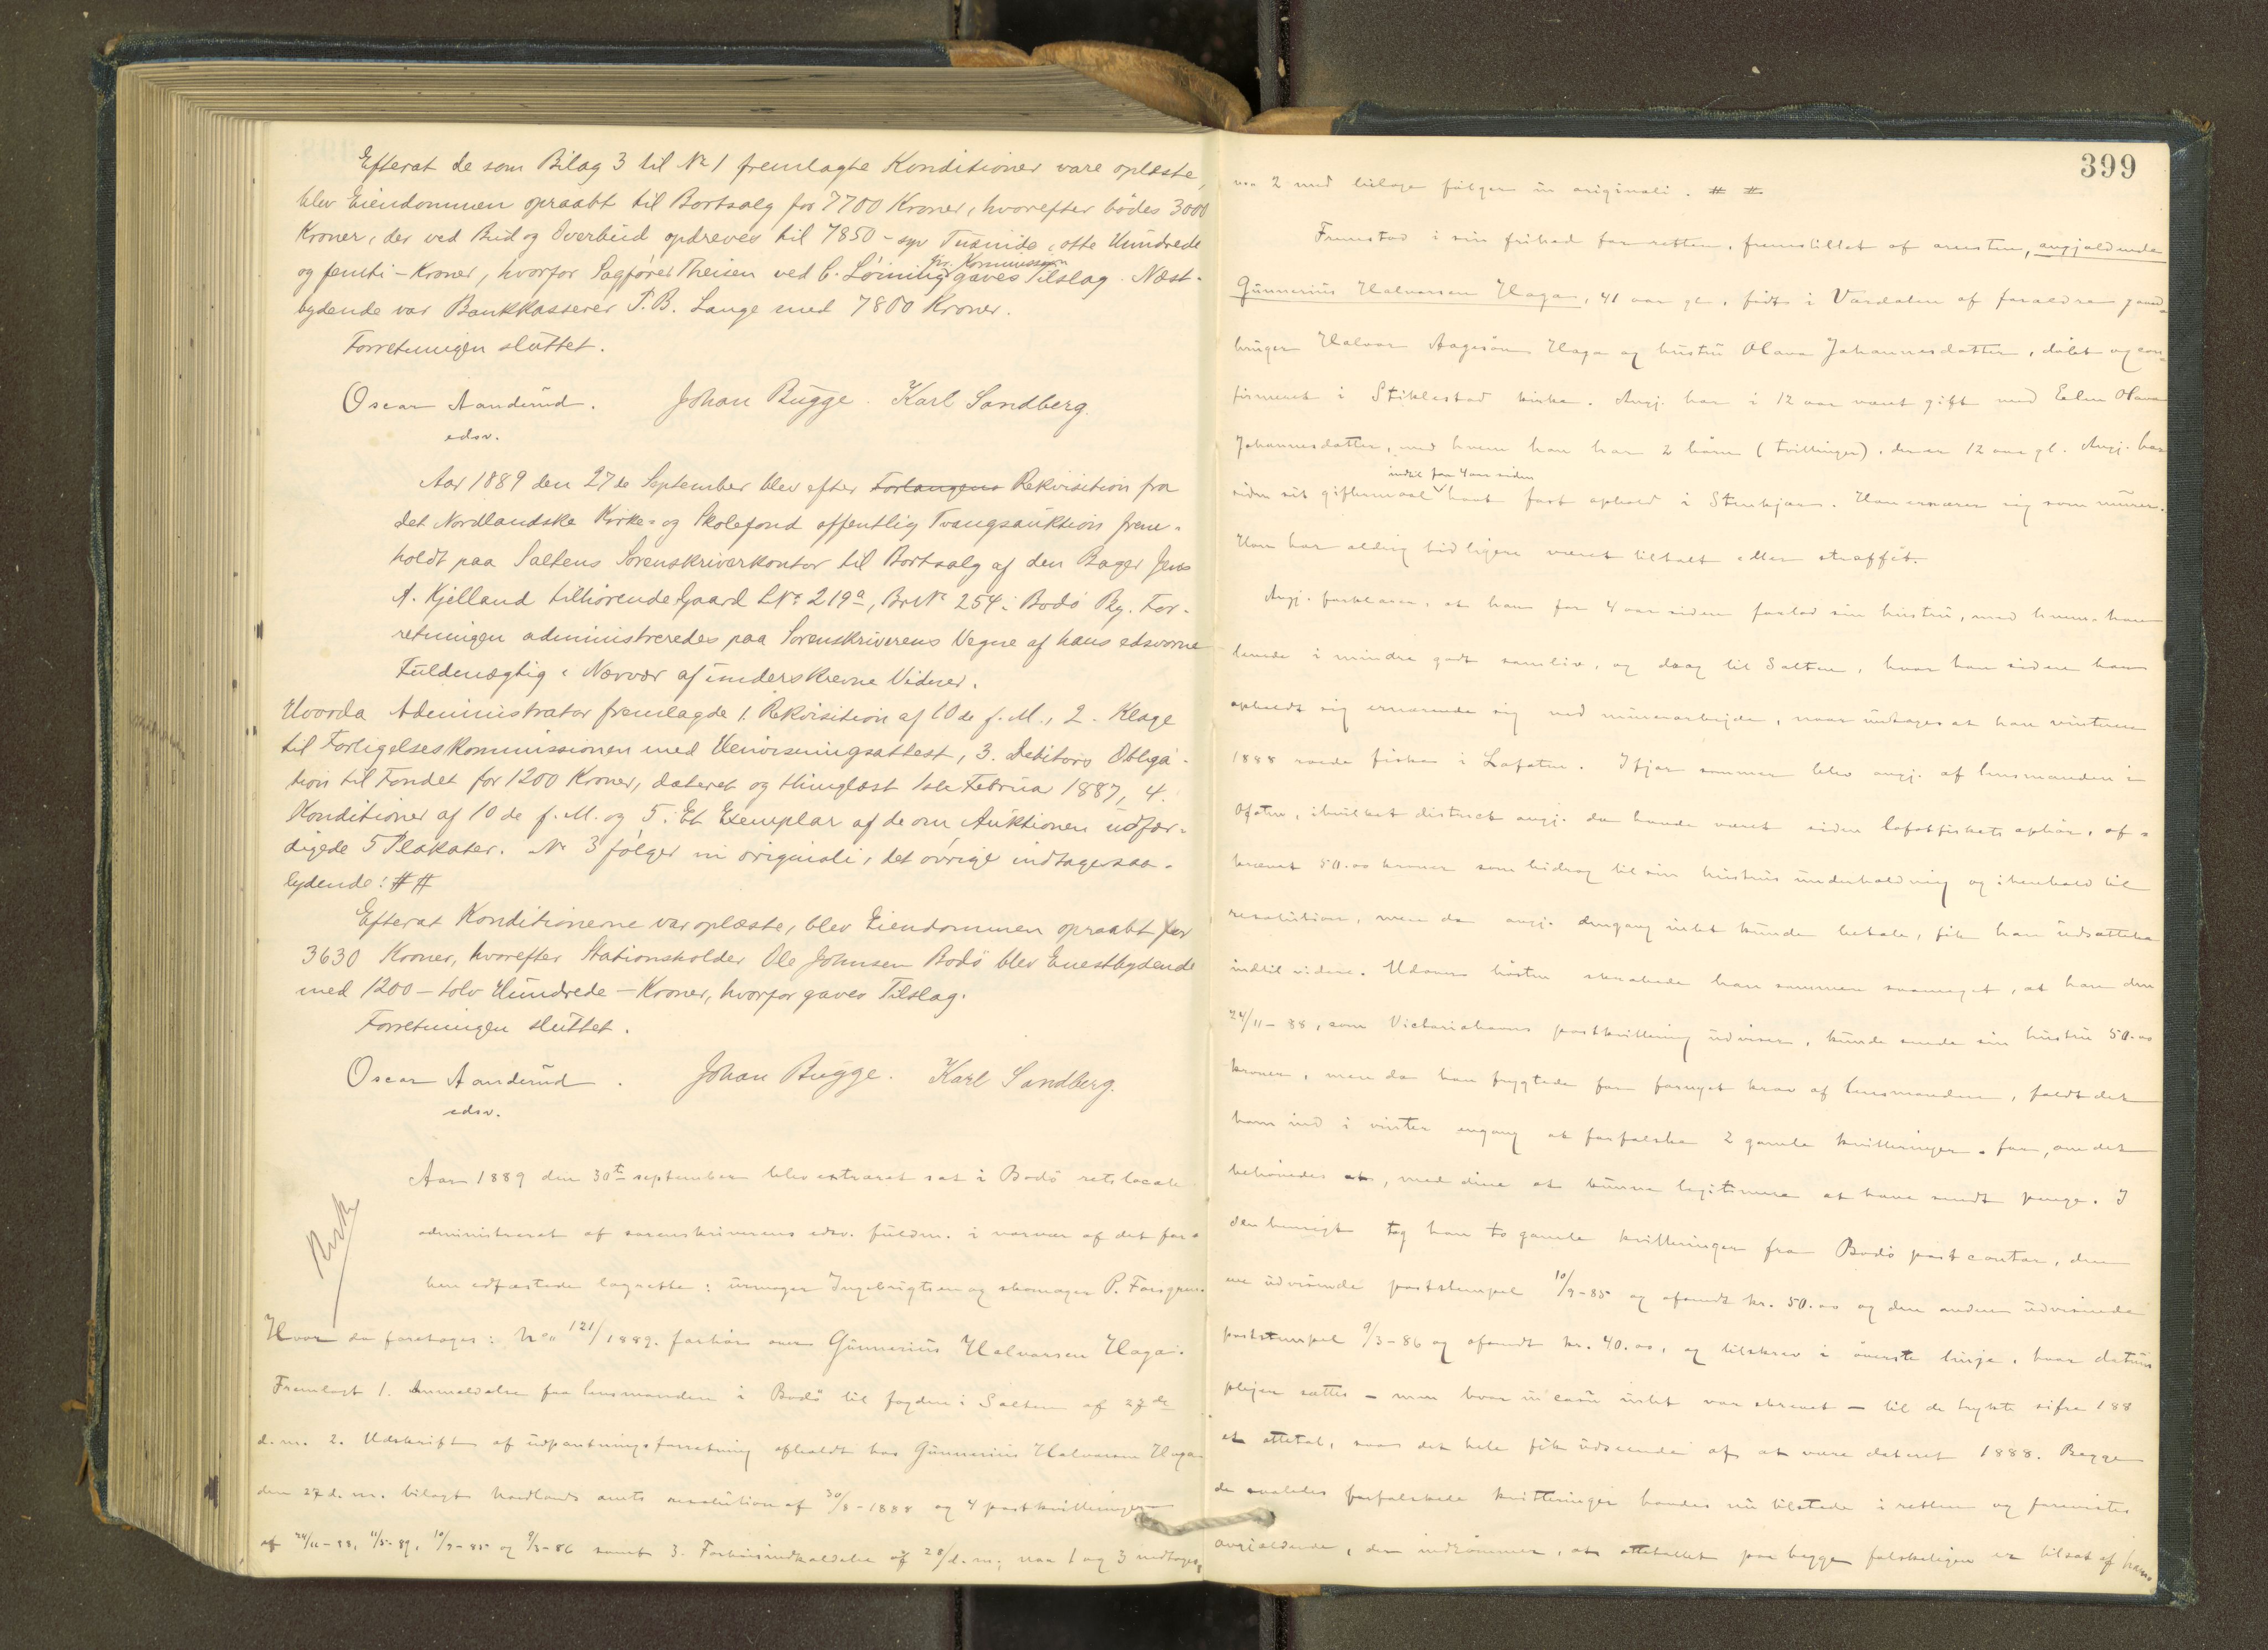 Efterat de som Bilag 3 til No 1 fremlagte Konditioner vare oplæste,
blev Eiendommen opraabt til Bortsalg for 7700 Kroner, hvorefter bødes 3000
Kroner, der ved Bud og Overbud opdreves til 7850 - syv Tusinde, otte Hundrede
og femti - Kroner, hvorfor Sagfører Theisen ved C. Løining gaves Tilslag. Næst-
pr. Kommission
bydende var Bankkasserer P. B. Lange med 7800 Kroner.
Forretningen sluttet.
Oscar Aanderud. Johan Bugge. Karl Sandberg.
edsv.
Aar 1889 den 27de September blev efter Forlangens Rekvisition fra
det Nordlandske Kirke- og Skolefond offentlig Tvangsauktion frem-
holdt paa Saltens Sorenskriverkontor til Bortsalg af den Bager Jens
A. Kjelland tilhørende Gaard LNo 219a, BrNo 254 i Bodø By. For-
retningen administreredes paa Sorenskriverens Vegne af hans edsvorne
Fuldmægtig i Nærvær af underskrevne Vidner.
Hvorda Administrator fremlagde 1. Rekvisition af 10de f. M., 2. Klage
til Forligelseskommissionen med Henvisningsattest, 3. Debitors Obliga-
tion til Fondet for 1200 Kroner, dateret og thinglæst 1ste Februar 1887, 4.
Konditioner af 10de f. M. og 5. Et Exemplar af de om Auktionen udfær-
digede 5 Plakater. No 3 følger in originali, det øvrige indtages saa-
lydende: # #
Efterat Konditionerne var oplæste, blev Eiendommen opraabt for
3630 Kroner, hvorefter Stationsholder Ole Johnsen Bodø blev Enestbydende
med 1200 - tolv Hundrede - Kroner, hvorfor gaves Tilslag.
Forretningen sluttet.
Oscar Aanderud. Johan Bugge. Karl Sandberg.
edsv.
Aar 1889 den 30te september blev extraret sat i Bodø retslocale
administreret af sorenskriverens edsv. fuldm. i nærvær af det for-
hen edfæstede lagrette: urmager Ingebrigtsen og skomager P. Forsgren.
Hvor da foretages: No 121/1889. forhør over Gunnerius Halvorsen Haga.
Fremlagt 1. Anmeldelse fra lensmanden i Bodø til fogden i Salten af 27de
d. m. 2. Udskrift af udpantningsforretning afholdt hos Gunnerius Halvorsen Haga
den 27 d. m. bilagt Nordlands amts resolution af 30/8-1888 og 4 postkvitteringer
af 24/11-88, 11/5-89, 10/9-85 og 9/3-86 samt 3. Forhørsindkaldelse af 28/d. m.; naa 1 og 3 indtages,
399
naa 2 med bilage følger in originali. # #
Fremstod i sin frihed for retten, fremstillet af arresten, angjældende
Gunnerius Halvorsen Haga, 41 aar gl., født i Værdalen af forældre gaard-
bruger Halvor Aagesøn Haga og hustru Olava Johannesdatter, døbt og con-
firmeret i Stiklestad kirke. Angj. har i 12 aar været gift med Elen Olava
Johannesdatter, med hvem han har 2 børn (tvillinger), der er 12 aar gl. Angj. har
indtil for 4 aar siden
siden sit giftermaal havt fast ophold i Stenkjær. Han ernærer sig som murer.
Han har aldrig tidligere været tiltalt eller straffet.
Angj. forklarer, at han for 4 aar siden forlod sin hustru, med hvem han
levede i mindre godt samliv, og drog til Salten, hvor han siden har
opholdt sig ernærende sig ved murerarbejde, naar undtages at han vinteren
1888 roede fiske i Lofoten. Ifjor sommer blev angj. af lensmanden i
Ofoten, i hvilket district angj. da havde været siden lofotfiskets ophør, af-
krævet 50.00 kroner som bidrag til sin hustrus underholdning og i henhold til
resolution, men da angj. dengang intet kunde betale, fik han udsættelse
indtil videre. Udover høsten skrabede han sammen saameget, at han den
24/11-88, som Victoriahavns postkvittering udviser, kunde sende sin hustru 50.00
kroner, men da han frygtede for fornyet krav af lensmanden, faldt det
ham ind i vinter engang at forfalske 2 gamle kvitteringer, for, om det
behøvedes at, med dem at kunne legitimere at have sendt penge. I
den hensigt tog han to gamle kvitteringer fra Bodø postcontor, den
ene udvisende poststempel 10/9-85 og afsendt kr. 50.00 og den anden udvisende
poststempel 9/3-86 og afsendt kr. 40.00, og tilskrev i øverste linje, hvor datum
plejer sættes - men hvor in casu intet var skrevet - til de trykte sifre 188
et ottetal, saa det hele fik udseende af at være dateret 1888. Begge
de saaledes forfalskede kvitteringer havdes nu tilstede i retten og forevistes
angjældende, der indrømmer, at ottetallet paa begge falskeligen er tilsat af ham.